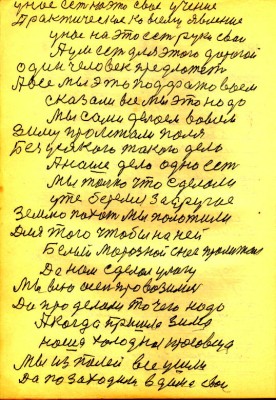 умное ест на это свое учение
Практическое ко всему явление
умное на это ест руки свои
А ум ест для этого дорогой
один человек предложет
А все мы это поддражо всем
сказали все мы это надо
Мы сами делаем во всем
Зиму пролежали поля
Без всякого такого дело
А наше дело одно ест
Мы только что сделали
уже берем за другие
Землю пахот мы полюбили
Для того чтобы на ней
Белый морозной снег пролежал
Да нам сделал улагу
Мы всю осен провозими
Да проделали то чего надо
А когда пришла зима
наша холодная
Мы из полей все ушли
Да по заходили в дома свои